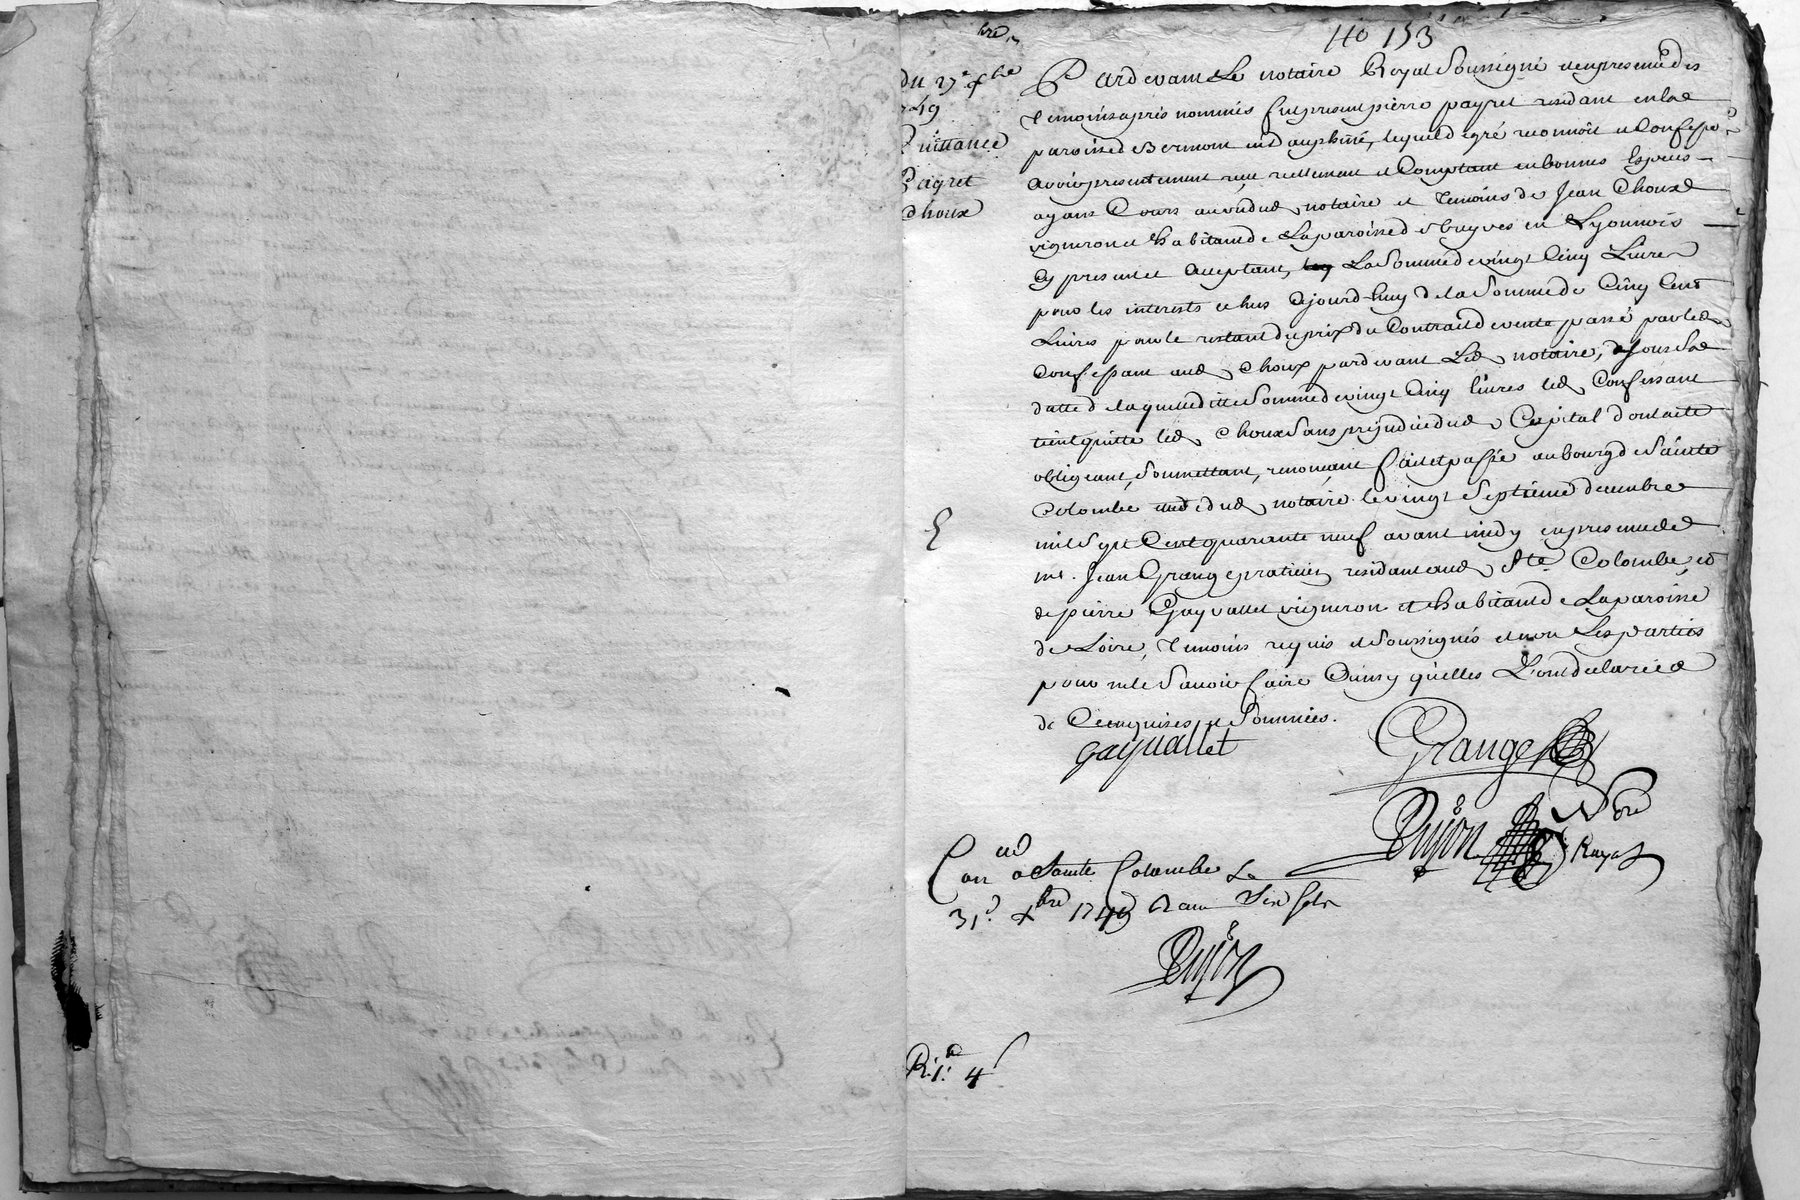 bre
140 153
Du 27e xbre
1749
Quittance
Payret
Choux
Pardevant Le notaire Royal Soussigné et en presence des
temoins apprès nommés fut present pierre payret residant en la
paroisse de Bermont en dauphiné, lequel de gré reconnoit et Confesse
avoir presentement reçu reellement et Comptant en bonnes Especes
ayant Cours au vû dud notaire et temoins de Jean Choux
vigneron et habitant de La paroisse d'ebuyves en Lyonnois
Cy present et acceptant, La Somme de vingt Cinq Livres
pour les interests echus ajourd-huy de la Somme de Cinq Cent
Livres pour le restant du prix du Contract de vente passé par led
Confessant aud Choux pardevant Led notaire, Sous Sa
datte de laquelle ditte Somme de vingt Cinq livres led Confessant
tient quitte led Choux Sans prejudice dud Capital dont acte
obligeant, Soumettant, renonçant fait et passé au bourg de Sainte
Colombe etude dud notaire le vingt Septieme decembre
mil Sept Cent quarante neuf avant midy en presence de
me. Jean Grange praticien residant aud Ste. Colombe, et
de pierre Gayvallet vigneron et habitant de La paroisse
de Loire, temoins requis et Soussignés et non Les parties
pour ne le Savoir faire Ainsy qu'elles L'ont declaré
de Ce enquises et Sommées.
gayvallet
Grange
Dujon
Nore
Royal
Con a Sainte Colombe Le
31e xbre 1749 Reçu Six Sols
Dujon
R. 1. 4